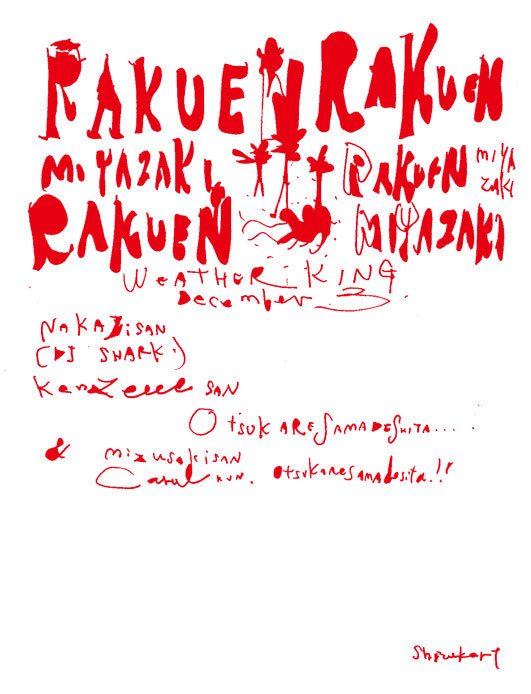 RAKUEN RAKUEN
MIYAZAKI RAKUEN MIYAZAKI
RAKUEN MIYAZAKI
WEATHER KING
December 3.
NAKAJiSAN
(DJ SHARK.)
SAN
OTSUKARESAMADESHITA....
& mizusakiSAN
KUN. OtSUKARESAMAdesita.!!